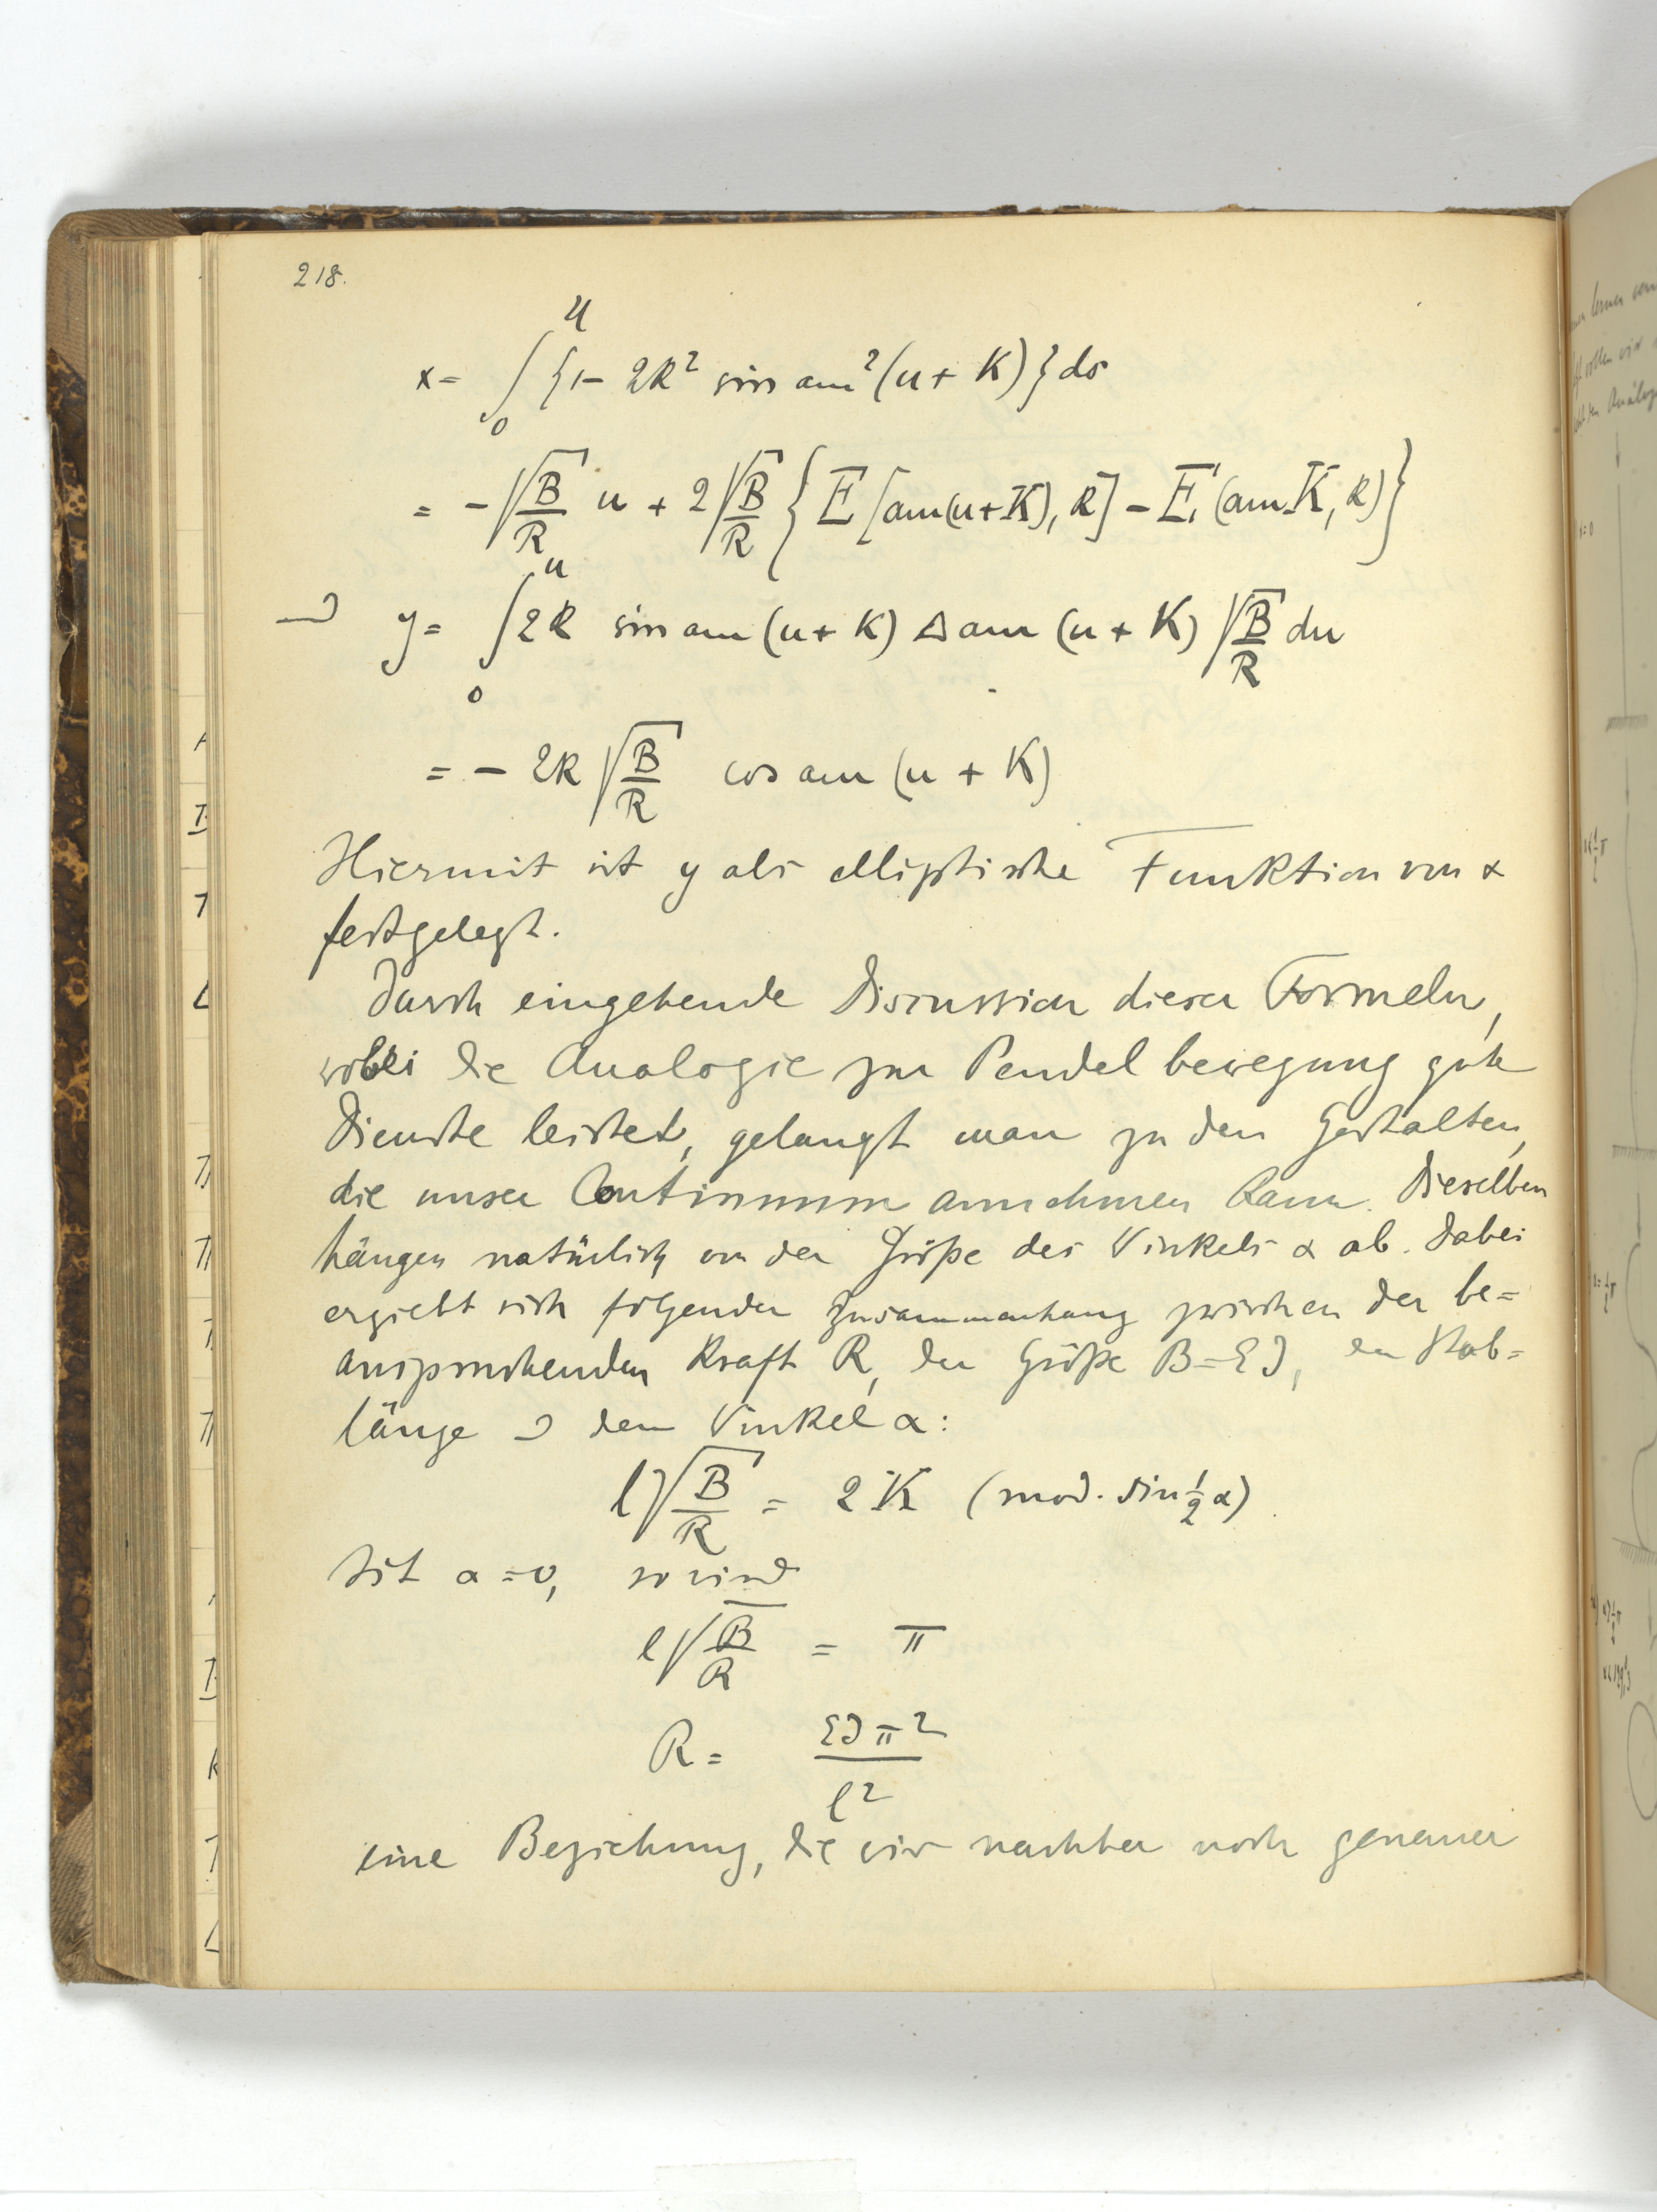 218.
x = ∫₀ᵘ {1 - 2k² sin am² (u + K)} ds
= - √(B/R) u + 2 √(B/R) { E [am (u + K), k] - E (am K, k) }
y = ∫₀ᵘ 2k sin am (u + K) Δ am (u + K) √(B/R) du
= - 2k √(B/R) cos am (u + K)
Hiermit ist y als elliptische Funktion von x
festgelegt.
Durch eingehende Discussion dieser Formeln,
wobei die Analogie zur Pendelbewegung gute
Dienste leistet, gelangt man zu den Gestalten,
die unser Continuum annehmen kann. Dieselben
hängen natürlich von der Größe des Winkels α ab. Dabei
ergiebt sich folgender Zusammenhang zwischen der be=
anspruchenden Kraft R, der Größe B = EJ, der Stab=
länge dem Winkel α:
l √(B/R) = 2 K (mod. sin ½ α)
Ist α = 0, so wird
l √(B/R) = π
R = EJπ² / l²
eine Beziehung, die wir nachher noch genauer